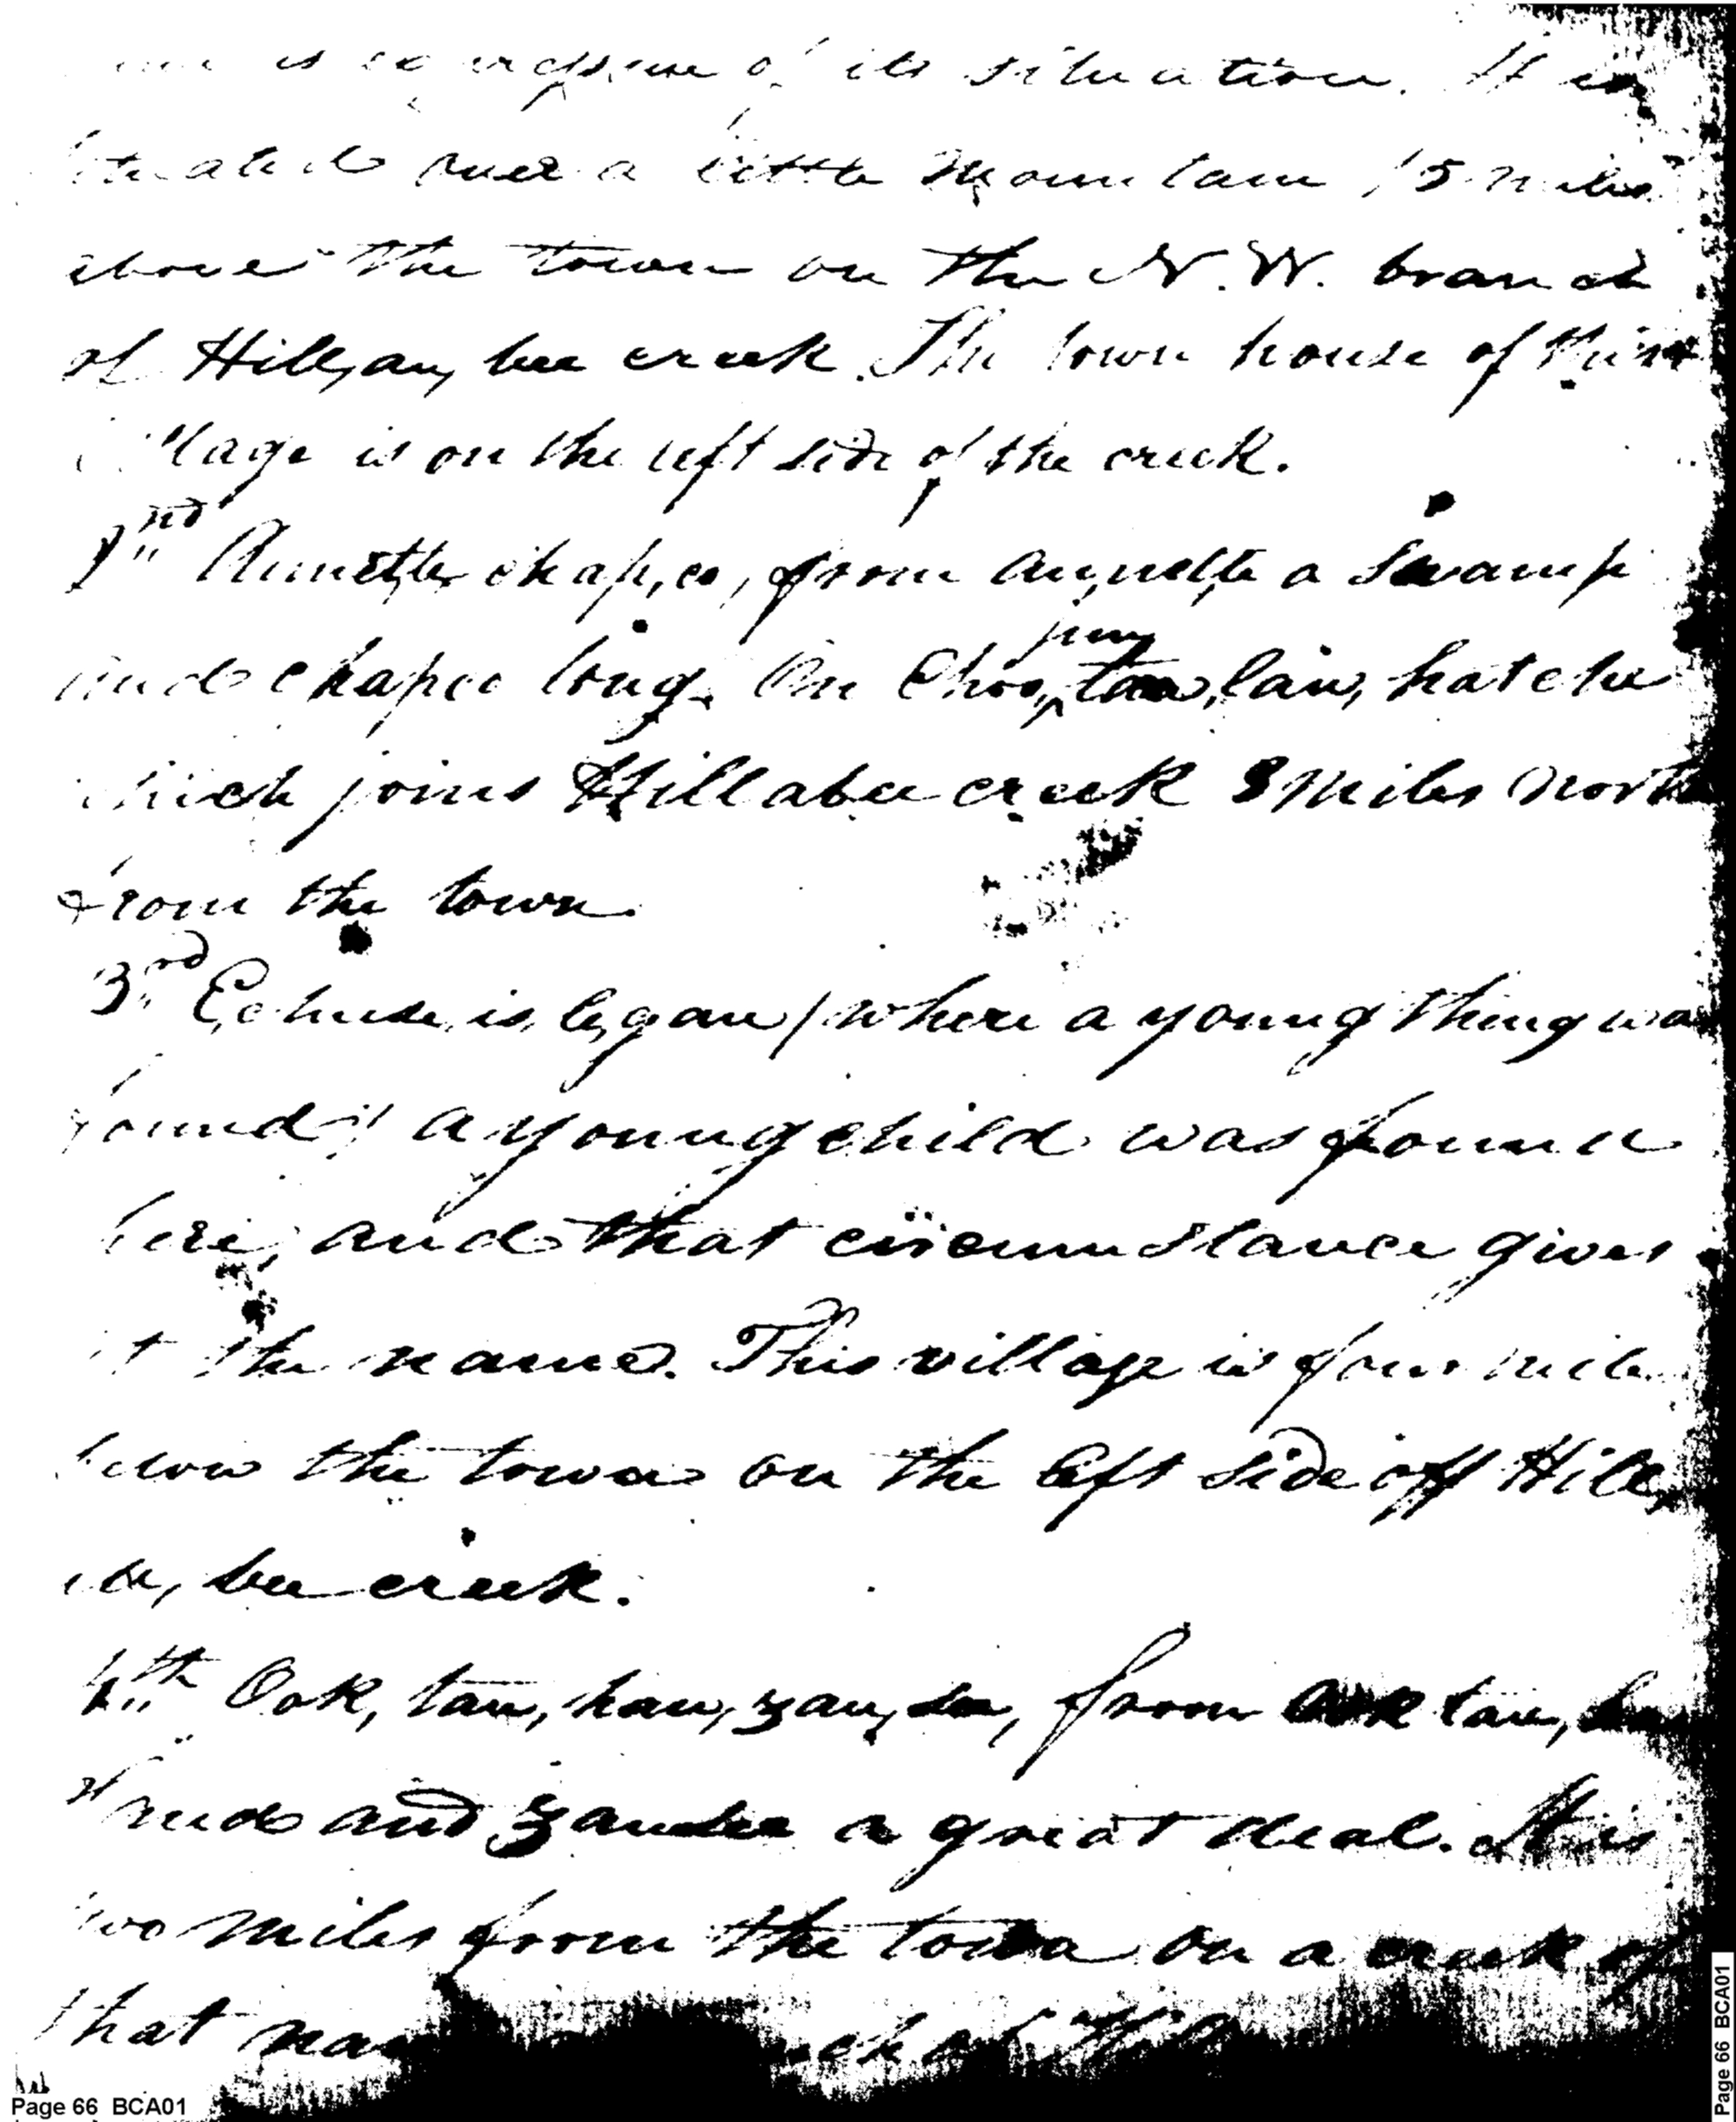 is expressive of its situation. It is
situated over a little Mountain 15 miles
above the town on the N. W. branch
of Hill,au,bee creek. The town house of this
village is on the left side of the creek.
2nd Annette chap,co, from au,nette a Swamp
and chapco long. On Choo,fun,tau,lau,hatche
which joins Hillabee creek 3 miles north
from the town.
3rd Echuse,is,ligau, (where a young thing was
found) A young child was found
here, and that circumstance gives
it the name. This village is four miles
below the town on the left side off Hill,
au,bee creek.
4th Ook,tau,hau,zau,see, from Ook tau,hau
sand and zausee a great deal. It is
two miles from the town on a creek of
that
Page 66 BCA01
Page 66 BCA01